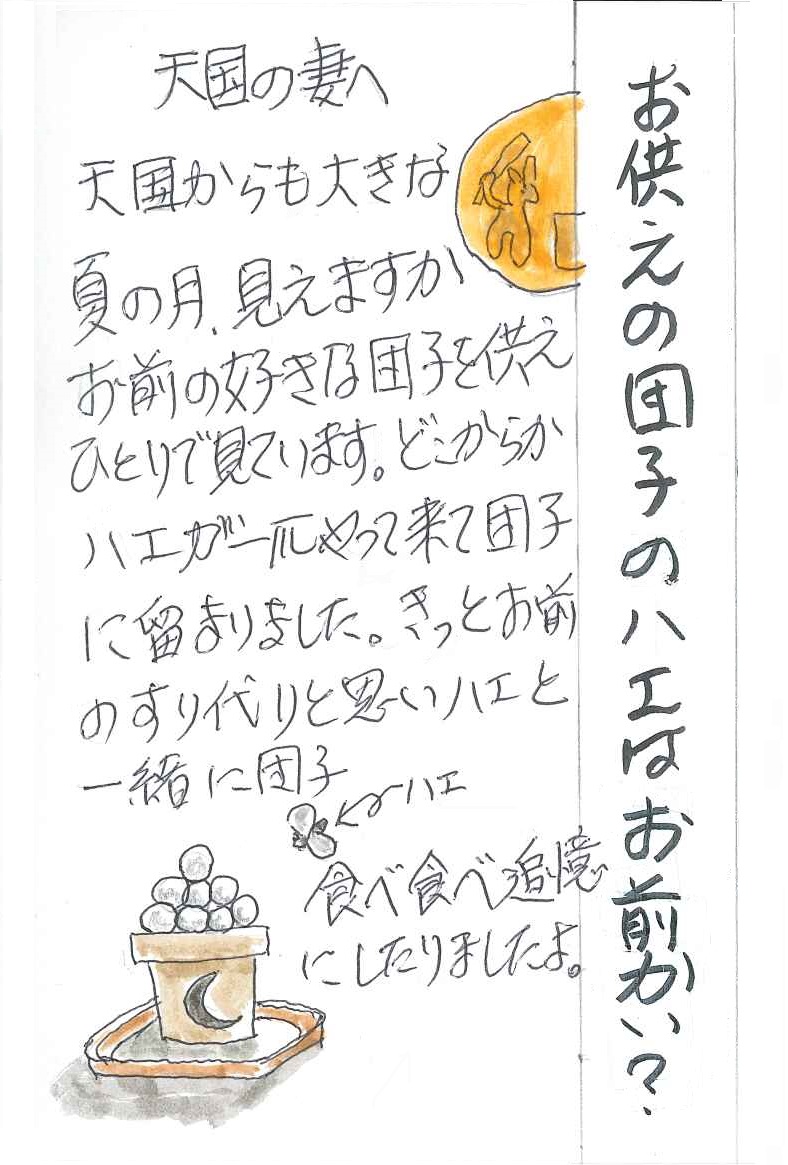 お供えの団子のハエはお前かい?
天国の妻へ
天国からも大きな
夏の月、見えますか
お前の好きな団子を供え
ひとりで見ています。どこからか
ハエが一匹やって来て団子
に留まりました。きっとお前
のすり代りと思いハエと
一緒に団子
ハエ
食べ食べ追憶
にしたりましたよ。